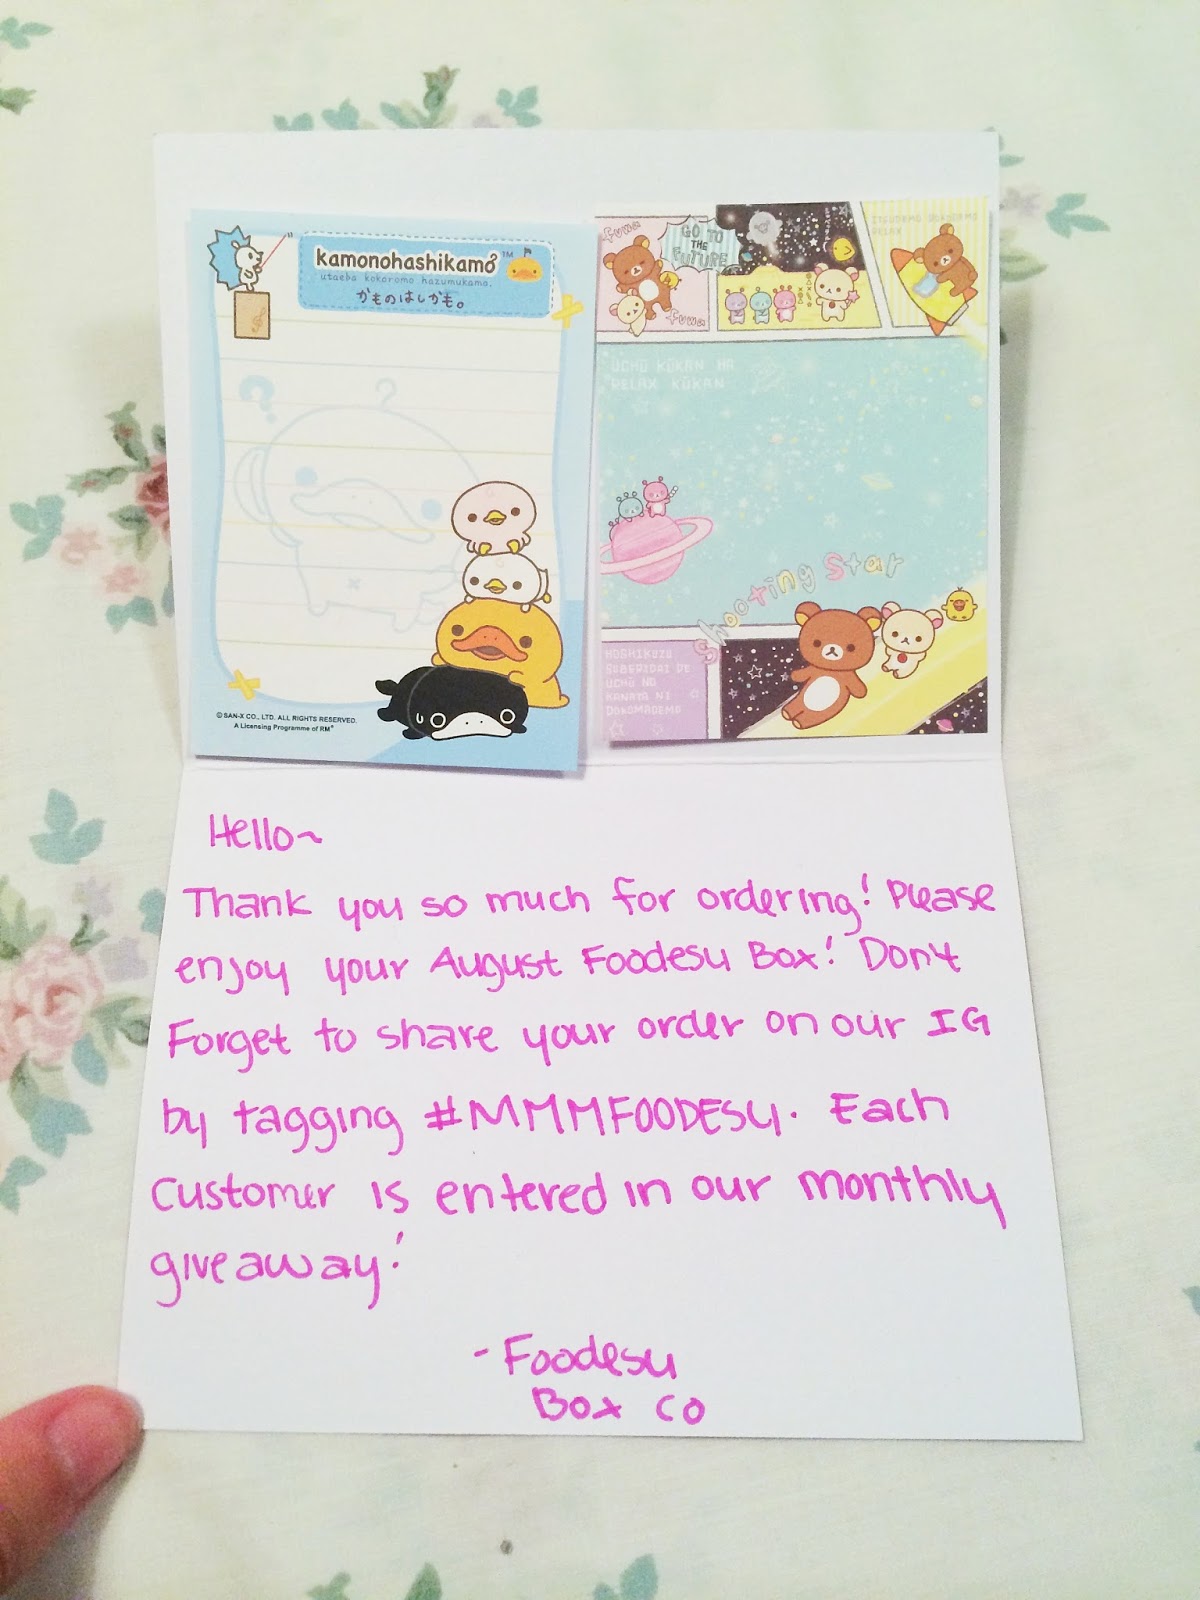 kamonohashikamo™
utaeba kokoromo hazumukamo.
かものはしかも。
?
?
© SAN-X CO., LTD. ALL RIGHTS RESERVED.
A Licensing Programme of RM+
fuwa
GO TO
THE
FUTURE
fuwa
RELAX
UCHŪ KŪKAN HA
RELAX KŪKAN
shooting star
HOSHIKUZU
UCHŪ NO
KANATA NI
DOKOMADEMO
Hello~
Thank you so much for ordering! Please
enjoy your August Foodesu Box! Don't
Forget to share your order on our IG
by tagging #MMMFOODESU. Each
Customer is entered in our monthly
giveaway!
- Foodesu
Box Co